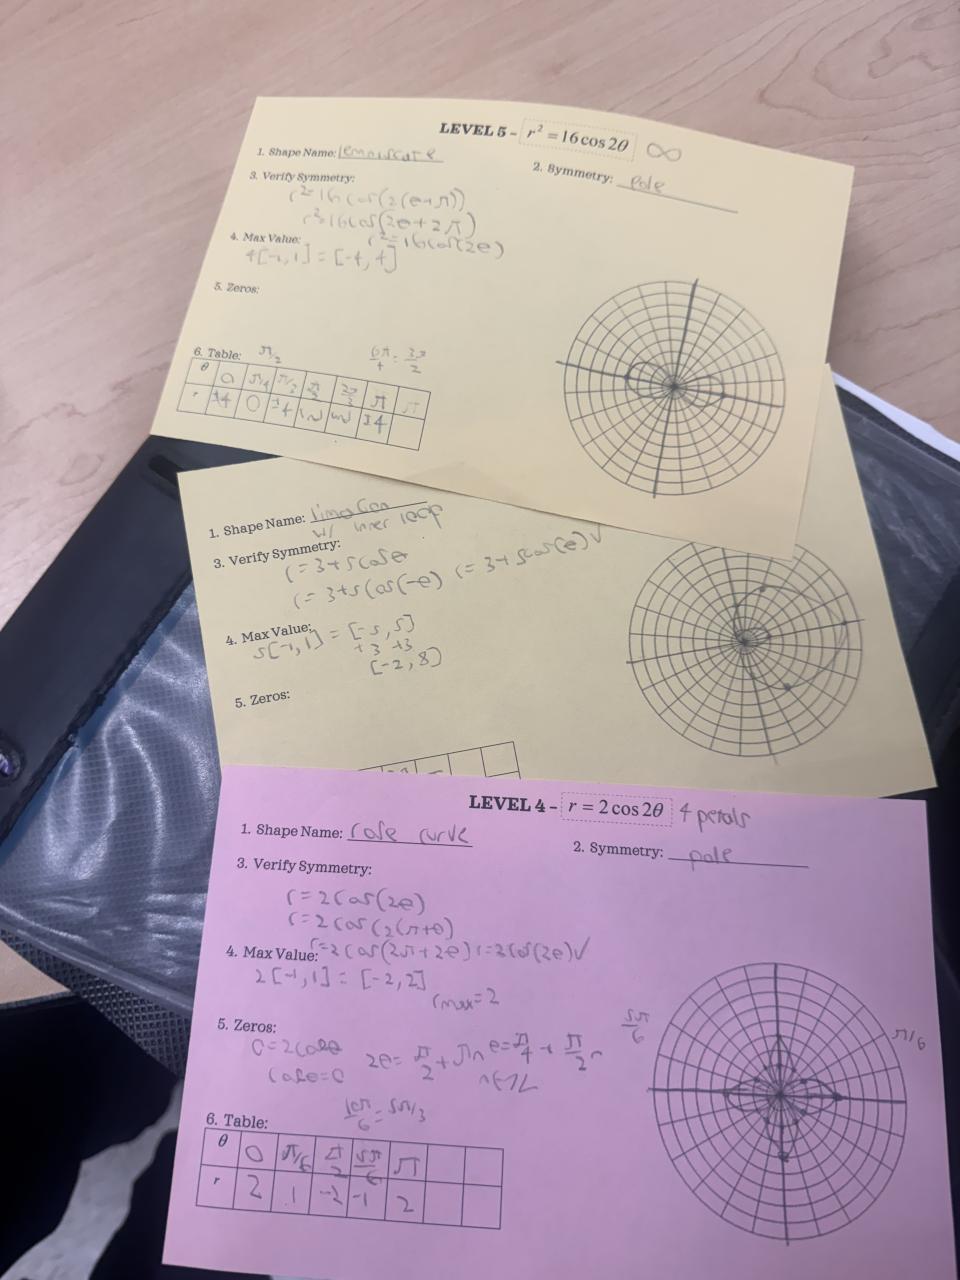 LEVEL 5 - r² = 16 cos 2θ ∞
1. Shape Name: lemniscate
2. Symmetry: pole
3. Verify Symmetry:
r²=16 cos(2(θ+π))
r²=16cos(2θ+2π)
r²=16cos(2θ)
4. Max Value:
4[-1,1] = [-4, 4]
5. Zeros:
6. Table: π/2 6π/4 = 3π/2
θ 0 π/4 π/2 π
r ±4 0 ±4 ±4
1. Shape Name: limacon
w/ inner loop
3. Verify Symmetry:
r=3+5cosθ
r=3+5cos(-θ) r=3+5cos(θ)√
4. Max Value:
5[-1,1] = [-5,5]
+3 +3
[-2,8]
5. Zeros:
LEVEL 4 - r = 2 cos 2θ 4 petals
1. Shape Name: rose curve
2. Symmetry: pole
3. Verify Symmetry:
r=2cos(2θ)
r=2cos(2(π+θ)
r=2cos(2π+2θ) r=2cos(2θ)√
4. Max Value:
2[-1,1] = [-2,2]
rmax=2
5. Zeros:
0=2cosθ 2θ= π/2 + πn θ=π/4 + π/2 n
cosθ=0 n∈ℤ
10π/6 = 5π/3
6. Table:
θ 0 π/6 π/2 5π/6 π
r 2 1 -2 -1 2
5π/6
π/6